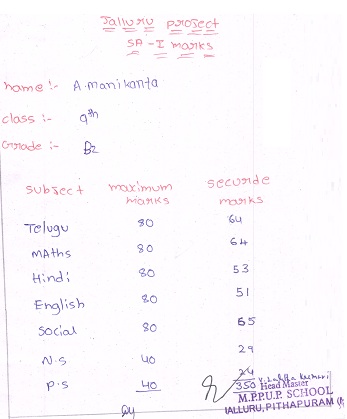 Jalluru project
SA-I marks
name :- A.manikanta
class :- 9th
Grade :- B2
subject maximum marks securde marks
Telugu 80 64
MAths 80 64
Hindi 80 53
English 80 51
Social 80 65
N.S 40 29
P.S 40 24
350
Head Master
M.P.P.U.P. SCHOOL
JALLURU, PITHAPURAM